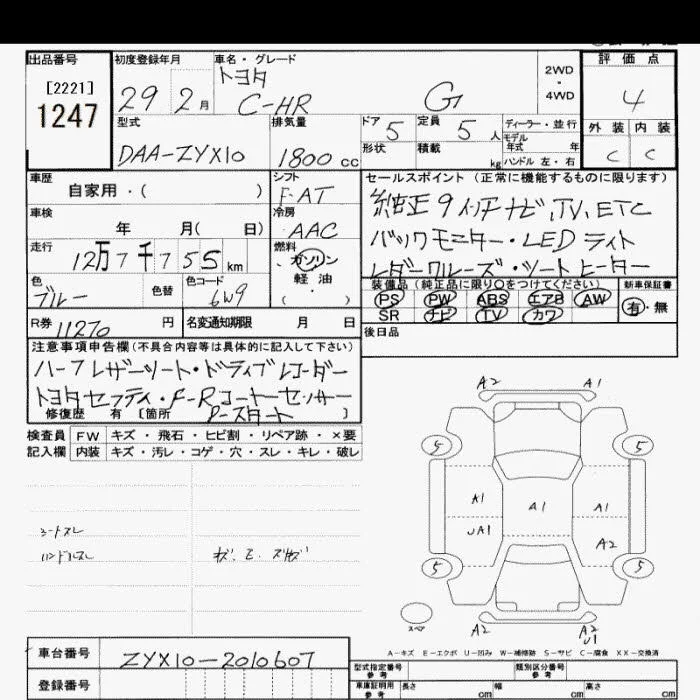 出品番号 初度登録年月 車名・グレード 評価点
[2221] トヨタ 2WD
1247 29 2月 C-HR G ・ 4WD 4
型式 排気量 ドア 5 定員 5人 ディーラー・並行 外装 内装
モデル年式 年
DAA-ZYX10 1800cc 形状 積載 kg ハンドル 左・右 C C
車歴 シフト セールスポイント (正常に機能するものに限ります)
自家用・( ) F-AT 純正9インチナビ、TV、ETC
車検 冷房
年 月( 日) AAC バックモニター・LEDライト
走行 燃料
12万7千755km ガソリン レダークルーズ・シートヒーター
色 色替 色コード 軽油 装備品(純正品に限り○をつけてください) 新車保証書
ブルー 6W9 ・( ) PS PW ABS エアB AW 有・無
SR ナビ TV カワ
R券 11270 円 名変通知期限 月 日 後日品
注意事項申告欄(不具合内容等は具体的に記入して下さい)
ハーフレザーシート・ドライブレコーダー
トヨタセフティ・F-Rコーナーセンサー
修復歴 有 [箇所 P-スタート ]
A2 A1
検査員 FW キズ・飛石・ヒビ割・リペア跡・×要
記入欄 内装 キズ・汚レ・コゲ・穴・スレ・キレ・破レ
5 5
A1 A1 A1
UA1 A2
シートスレ
ハンドルスレ
5 5
スペア
A2 A2
U1
A-キズ E-エクボ U-凹み W-補修跡 S-サビ C-腐食 XX-交換済
車台番号 ZYX10-2010607
型式指定番号 参考 類別区分番号 参考
登録番号 車庫証明用 参考 長さ cm 幅 cm 高さ cm